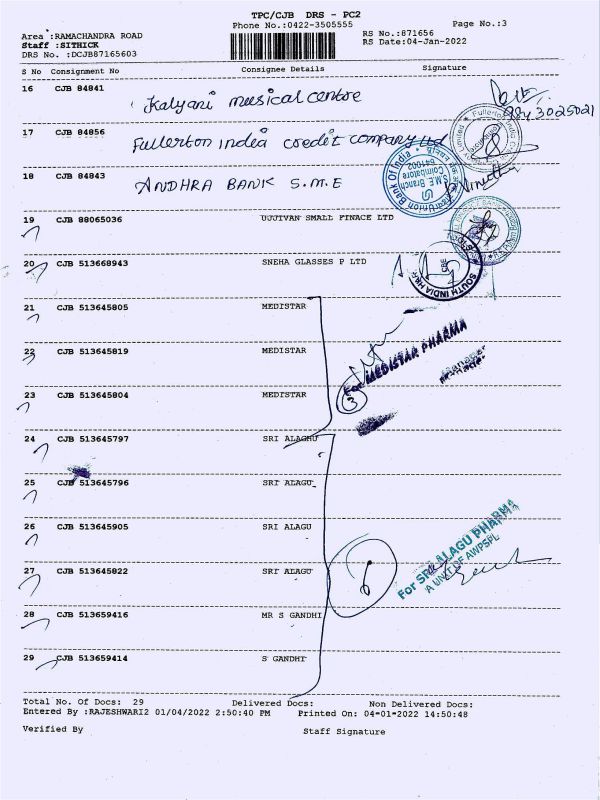 TPC/CJB DRS - PC2
Phone No.:0422-3505555
Page No.:3
Area :RAMACHANDRA ROAD
RS No.:871656
Staff :SITHICK
RS Date:04-Jan-2022
DRS No. :DCJB87165603
S No Consignment No Consignee Details Signature
16 CJB 84841 Kalyani musical centre
9843025021
17 CJB 84856 Fullerton India credit company ltd
18 CJB 84843 ANDHRA BANK S.M.E
Union Bank Of India
S.M.E Branch
Coimbatore
641002
19 CJB 88065036 UJJIVAN SMALL FINACE LTD
20 CJB 513668943 SNEHA GLASSES P LTD
SOUTH INDIA
CBE
21 CJB 513645805 MEDISTAR
22 CJB 513645819 MEDISTAR
For MEDISTAR PHARMA
Manager
23 CJB 513645804 MEDISTAR
3
24 CJB 513645797 SRI ALAGHU
25 CJB 513645796 SRI ALAGU
26 CJB 513645905 SRI ALAGU
27 CJB 513645822 SRI ALAGU
6
For SRI ALAGU PHARMA
A UNIT OF AWPSPL
28 CJB 513659416 MR S GANDHI
29 CJB 513659414 S GANDHI
Total No. Of Docs: 29 Delivered Docs: Non Delivered Docs:
Entered By :RAJESHWARI2 01/04/2022 2:50:40 PM Printed On: 04-01-2022 14:50:48
Verified By Staff Signature